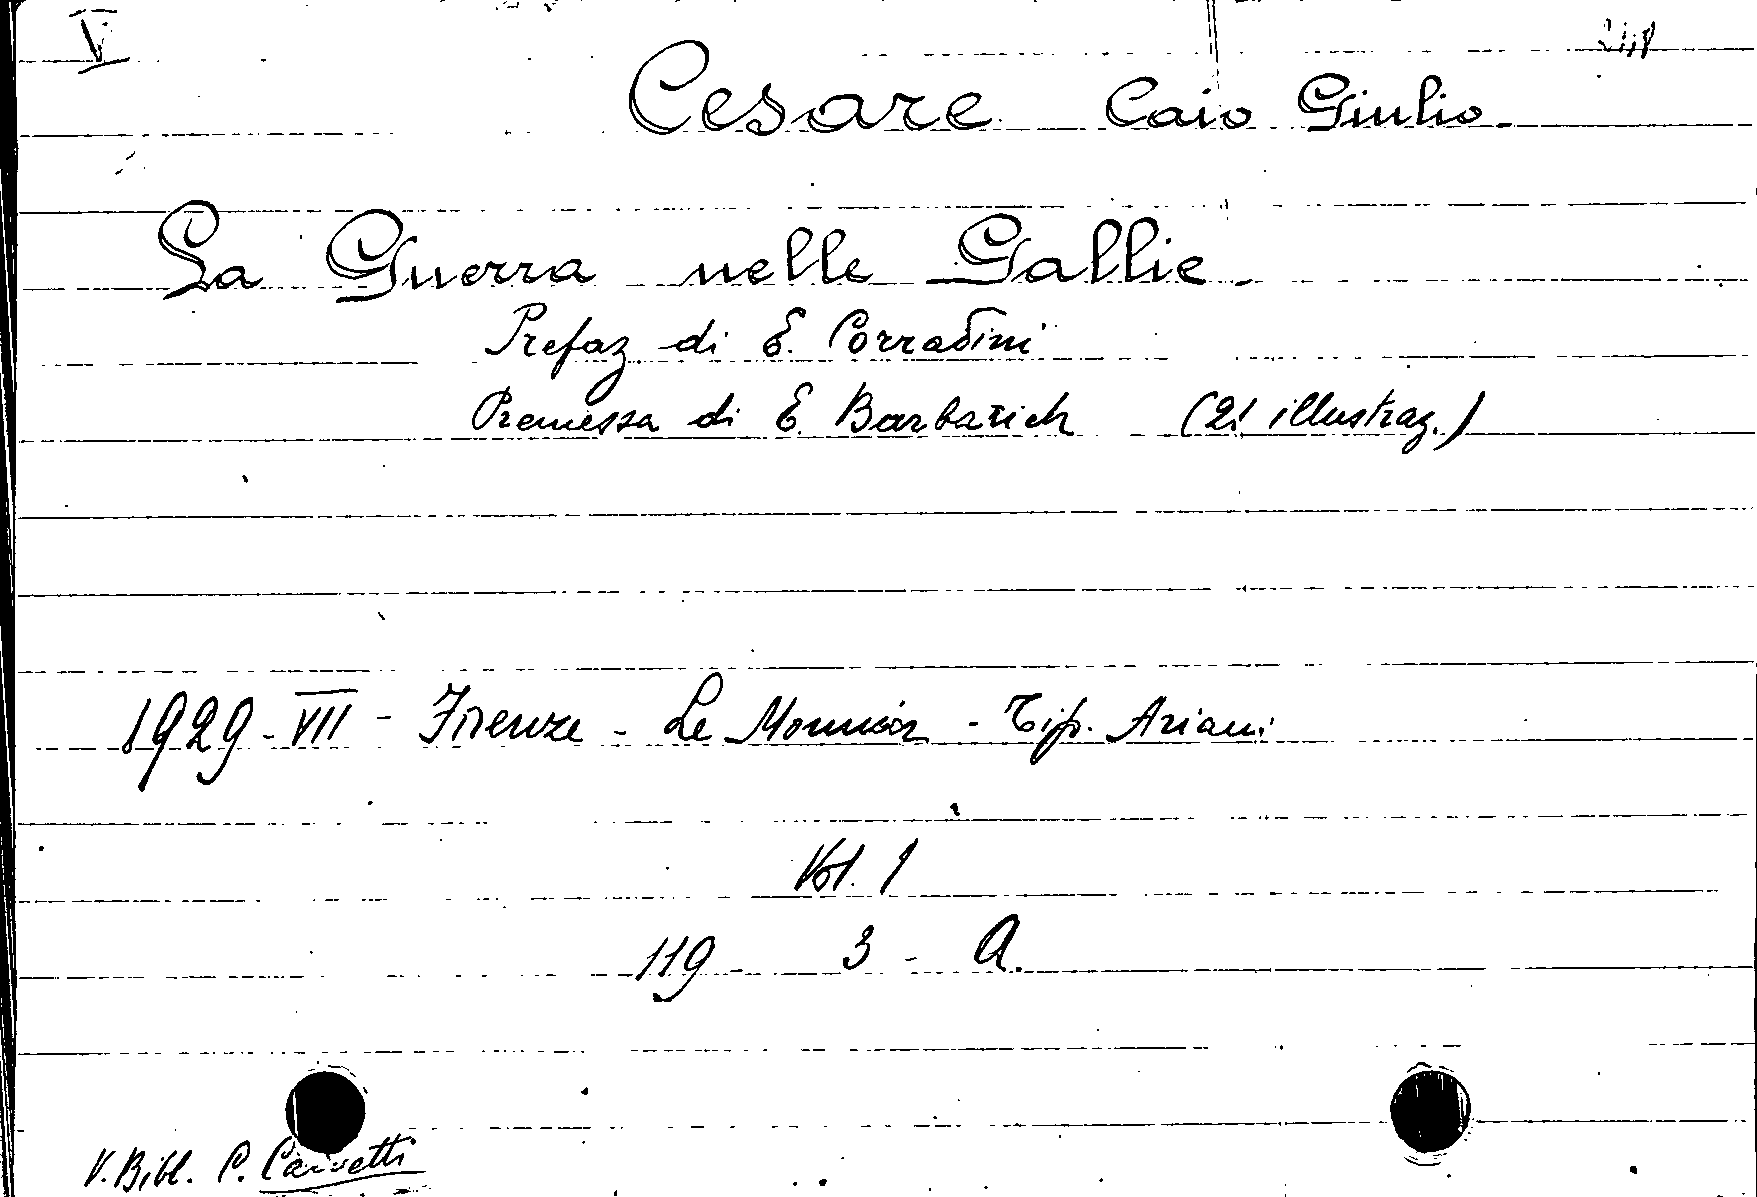 V
Cesare Caio Giulio
La Guerra nelle Gallie
Prefaz di E. Corradini
Premessa di E. Barbarich (21 illustraz.)
1929 - VII - Firenze - Le Monnier - Tip. Ariani
Vol. 1
119 - 3 - A.
V. Bibl. P.